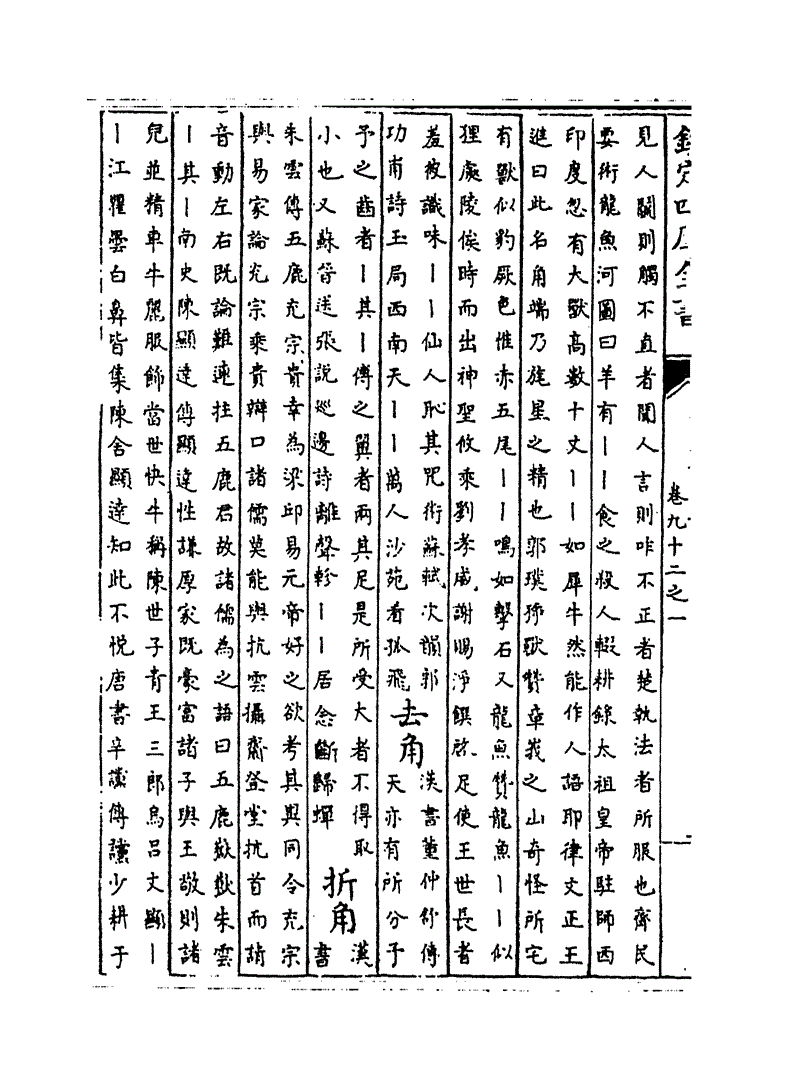 欽定四庫全書
卷九十二之一
見人鬭則觸不直者聞人言則咋不正者楚執法者所服也齊民
要術龍魚河圖曰羊有丨丨食之殺人輟耕錄太祖皇帝駐師西
印度忽有大獸高數十丈丨丨如犀牛然能作人語耶律文正王
進曰此名角端乃旄星之精也郭璞猙獸贊章莪之山奇怪所宅
有獸似豹厥色惟赤五尾丨丨鳴如擊石又龍魚贊龍魚丨丨似
狸處陵俟時而出神聖攸乘劉孝威謝賜淨饌啟足使王世長者
羞彼識味丨丨仙人恥其咒術蘇軾次韻郭
功甫詩玉局西南天丨丨萬人沙苑看孤飛
去角
漢書董仲舒傳
天亦有所分予
予之齒者丨其丨傅之翼者兩其足是所受大者不得取
小也又蘇晉送張說巡邊詩離聲軫丨丨居念斷歸蟬
折角
漢
書
朱雲傳五鹿充宗貴幸為梁邱易元帝好之欲考其異同令充宗
與易家論充宗乘貴辯口諸儒莫能與抗雲攝齋登堂抗首而請
音動左右既論難連拄五鹿君故諸儒為之語曰五鹿嶽嶽朱雲
丨其丨南史陳顯達傳顯達性謙厚家既豪富諸子與王敬則諸
兒並精車牛麗服飾當世快牛稱陳世子青王三郎烏呂文顯丨
丨江瞿曇白鼻皆集陳舍顯達知此不悅唐書辛讜傳讜少耕于